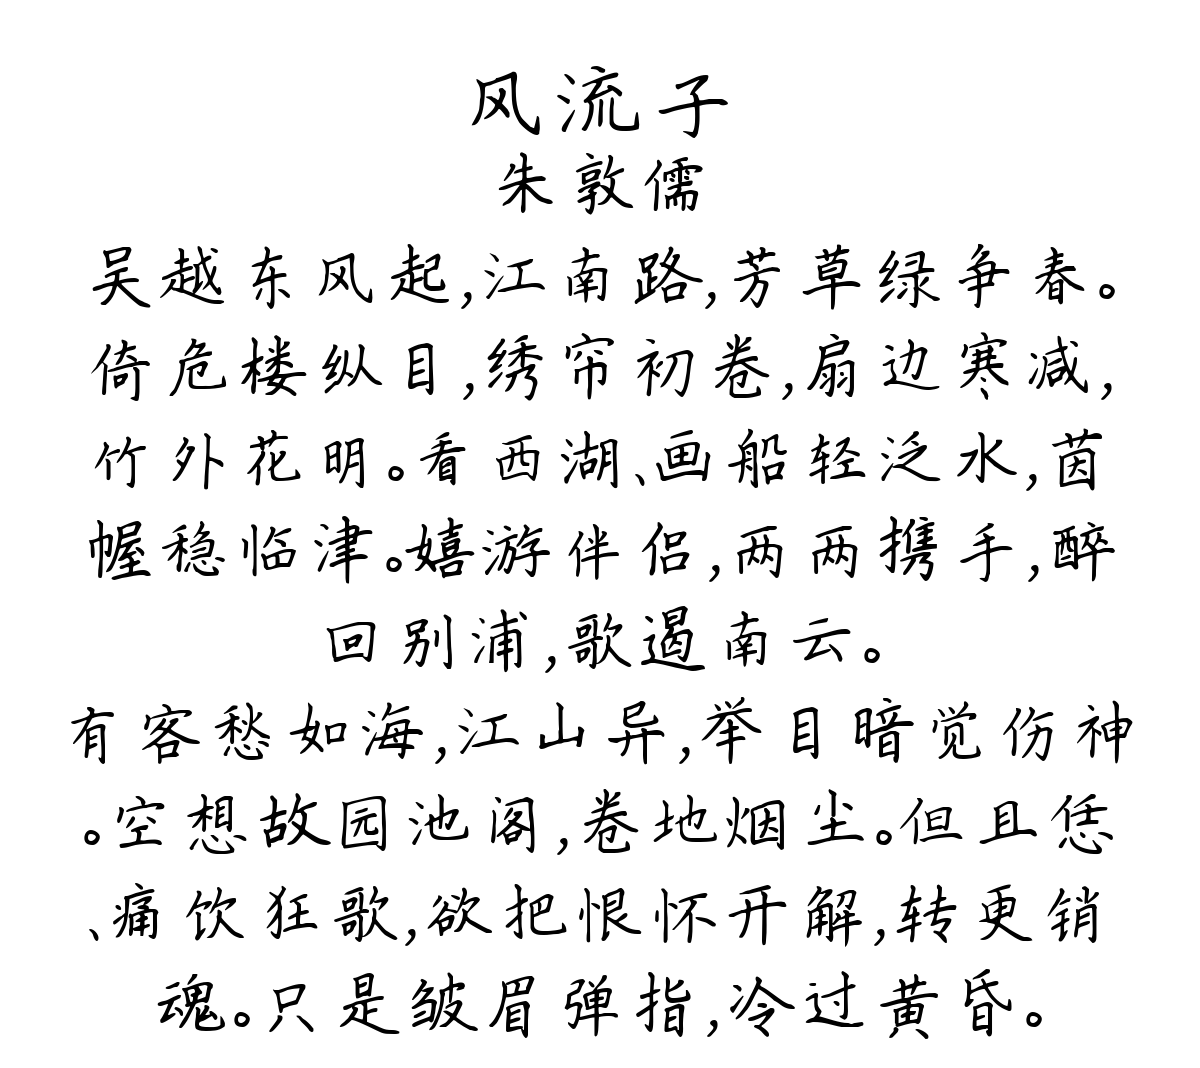 风流子
朱敦儒
吴越东风起,江南路,芳草绿争春。
倚危楼纵目,绣帘初卷,扇边寒减,
竹外花明。看西湖、画船轻泛水,茵
幄稳临津。嬉游伴侣,两两携手,醉
回别浦,歌遏南云。
有客愁如海,江山异,举目暗觉伤神
。空想故园池阁,卷地烟尘。但且恁
、痛饮狂歌,欲把恨怀开解,转更销
魂。只是皱眉弹指,冷过黄昏。